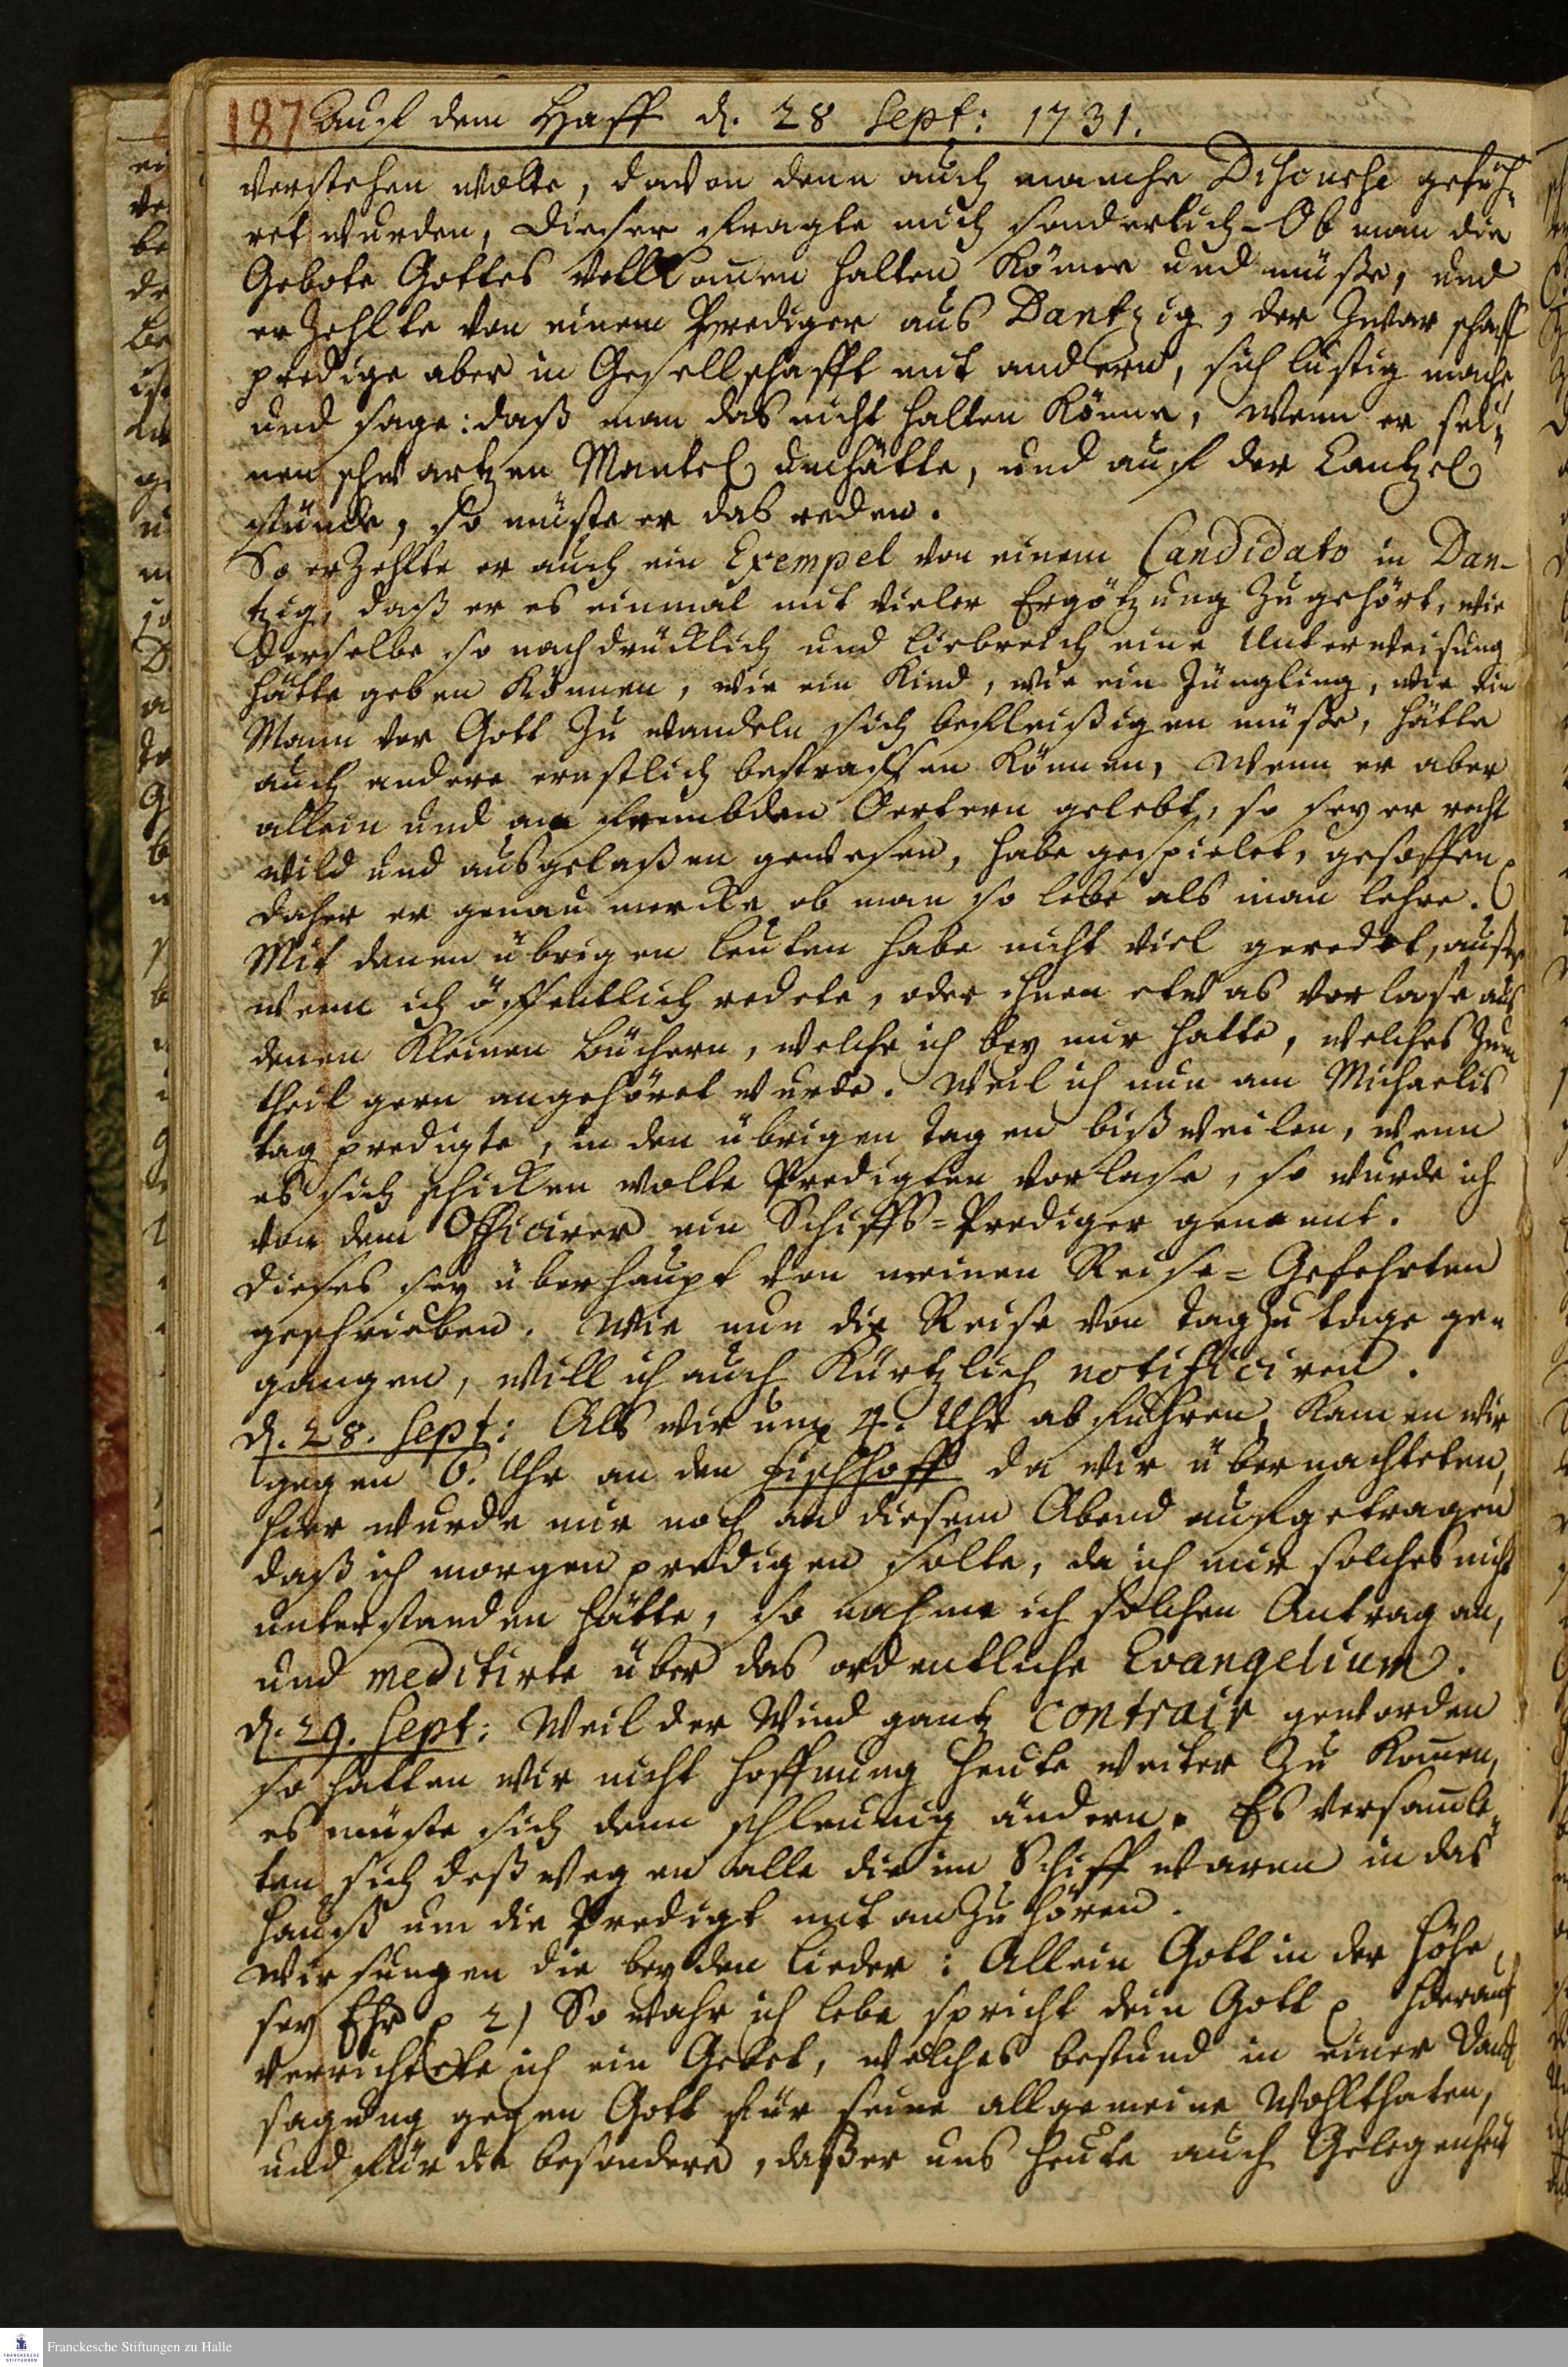 187 Auf dem Haff d. 28 Sept: 1731.
verstehen wolte, davon denn auch manche Discourse gefüh-
ret wurden, dieser fragte mich sonderlich - Ob man die
Gebote Gottes vollkom̅en halten könne und müße, und
erzehlte von einem Prediger aus Dantzig, der zwar scharff
predige aber in Gesellschafft mit andern, sich lustig mache
und sage: daß man das nicht halten könne, wenn er sei-
nen schwartzen Mantel umhätte, und auf der Cantzel
stünde, so müste er das reden.
So erzehlte er auch ein Exempel von einem Candidato in Dan-
tzig, daß er es einmal mit vieler Ergötzung zugehört, wie
derselbe so nachdrücklich und liebreich eine Unterweisung
hätte geben können, wie ein Kind, wie ein Jüngling, wie ein
Mann vor Gott zu wandeln sich befleißigen müße, hätte
auch andere ernstlich bestraffen können, wenn er aber
allein und an frembden Oertern gelebt, so sey er recht
wild und ausgelaßen gewesen, habe gespielet, gesoffen
daher er genau mercke ob man so lebe als man lehre.
Mit denen übrigen Leuten habe nicht viel geredet, außer
wenn ich öffentlich redete, oder ihnen etwas vorlase aus
denen kleinen Büchern, welche ich bey mir hatte, welches zum
theil gern angehöret wurde. Weil ich nun am Michaelis
tag predigte, in den übrigen Tagen bißweilen, wenn
es sich schicken wolte Predigten vorlase, so wurde ich
von dem Officirer ein Schiffs-Prediger genennt.
Dieses sey überhaupt von meinen Reise-Gefehrten
geschrieben. Wie nun die Reise von tag zu tage ge-
gangen, will ich auch kürtzlich notificiren.
d. 28. Sept: Als wir um 4. Uhr abfuhren, kamen wir
gegen 6. Uhr an den Fischhoff da wir übernachteten,
hier wurde mir noch an diesem Abend aufgetragen
daß ich morgen predigen solte, da ich mir solches nicht
unterstanden hätte, so nahme ich solchen Antrag an,
und meditirte über das ordentliche Evangelium.
d. 29. Sept: Weil der Wind gantz contrair geworden
so hatten wir nicht Hoffnung heute weiter zu kom̅en,
es müste sich denn schleunig ändern. Es versam̅le-
ten sich deßwegen alle die im Schiff waren in das
Hauß um die Predigt mit anzuhören.
Wir sungen die beyden Lieder: Allein Gott in der Höhe
sey Ehr p 2) So wahr ich lebe spricht dein Gott p hierauf
verrichtete ich ein Gebet, welches bestund in einer Danck
sagung gegen Gott für seine allgemeine Wohlthaten,
und für die besondere, daß er uns heute auch Gelegenheit
Franckesche Stiftungen zu Halle